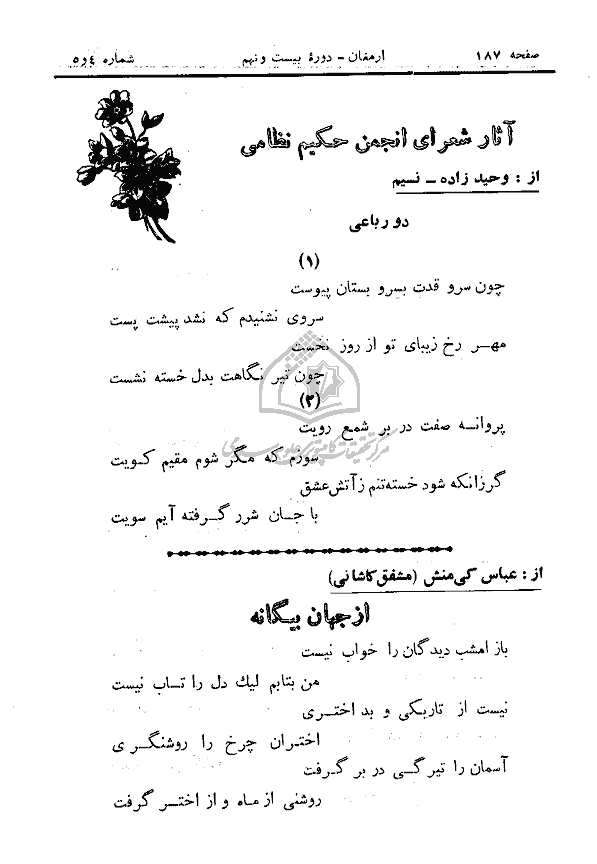 صفحه ۱۸۷
ارمغان - دورهٔ بیست و نهم
شماره ٤و٥
آثار شعرای انجمن حکیم نظامی
از : وحید زاده - نسیم
دو رباعی
(۱)
چون سرو قدت بسرو بستان پیوست
سروی نشنیدم که نشد پیشت پست
مهر رخ زیبای تو از روز نخست
چون تیر نگاهت بدل خسته نشست
(۲)
پروانه صفت در بر شمع رویت
سوزم که مگر شوم مقیم کویت
گرزانکه شود خسته‌تنم زآتش عشق
با جان شرر گرفته آیم سویت
از : عباس کی‌منش (مشفق کاشانی)
از جهان بیگانه
باز امشب دیدگان را خواب نیست
من بتابم لیك دل را تاب نیست
نیست از تاریکی و بد اختری
اختران چرخ را روشنگری
آسمان را تیرگی در بر گرفت
روشنی از ماه و از اختر گرفت
مرکز تحقیقات کامپیوتری علوم اسلامی